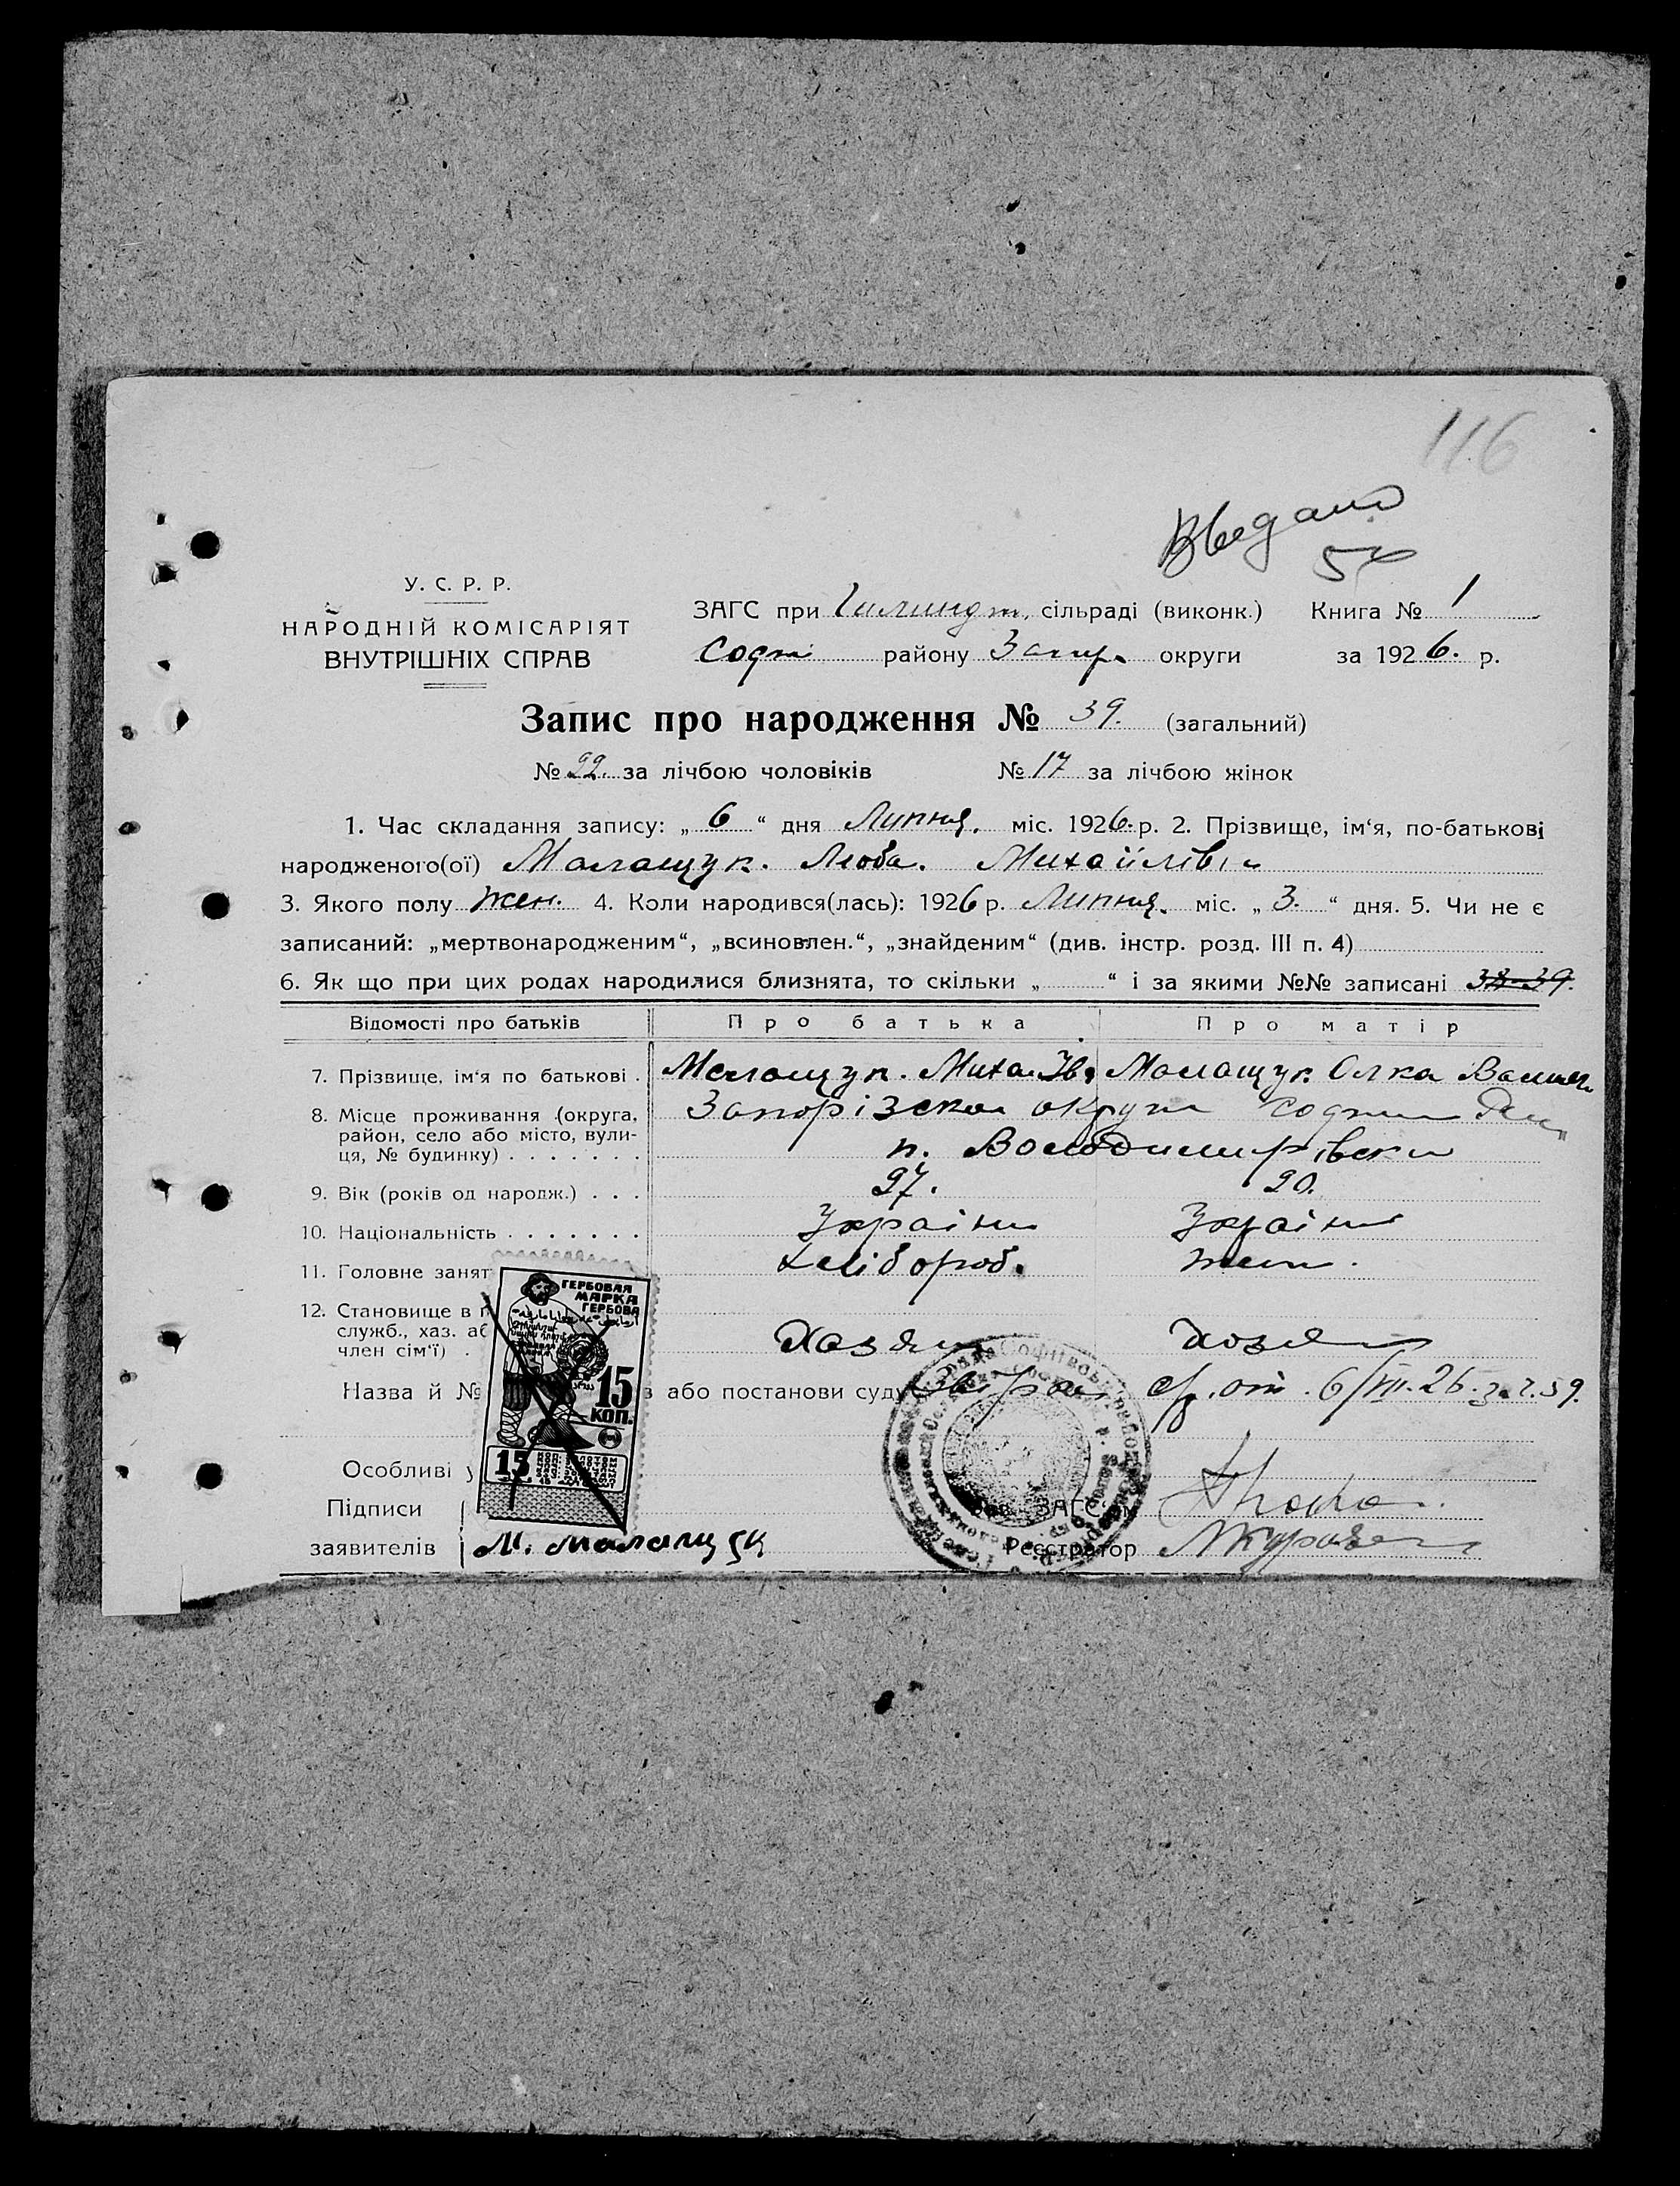 116
Введано
У. С. Р. Р.
НАРОДНІЙ КОМІСАРІЯТ
ВНУТРІШНІХ СПРАВ
ЗАГС при сільраді (виконк.) Книга № 1
Соф району Запор. округи за 1926. р.
Запис про народження № 39. (загальний)
№ 22. за лічбою чоловіків № 17 за лічбою жінок
1. Час складання запису: „ 6 “ дня Липня. міс. 1926. р. 2. Прізвище, ім‘я, по-батькові
народженого(ої) Малащук. Люба. Михайлівн
3. Якого полу жен. 4. Коли народився(лась): 1926 р. Липня. міс. „ 3. “ дня. 5. Чи не є
записаний: „мертвонародженим“, „всиновлен.“, „знайденим“ (див. інстр. розд. III п. 4)
6. Як що при цих родах народилися близнята, то скільки „ “ і за якими №№ записані 38-39.
Відомості про батьків Про батька Про матір
7. Прізвище, ім‘я по батькові . Малащук. Миха. Ів. Малащук Олка
8. Місце проживання (округа, Запорізька округи
район, село або місто, вули-
ця, № будинку) . . . . . . . п. Володимирівки
9. Вік (років од народж.) . . . 27. 20.
10. Національність . . . . . . . Україн Україн
11. Головне занят хлібороб.
12. Становище в п
служб., хаз. аб
член сім‘ї) . Хозя Хозя
Назва й № в або постанови суду от. 6/VII-26. з. ч. 59.
Особливі у
Підписи
заявителів М. малащук
ЗАГС‘ом
Реєстратор
ГЕРБОВАЯ
МАРКА
ГЕРБОВА
15
КОП.
15